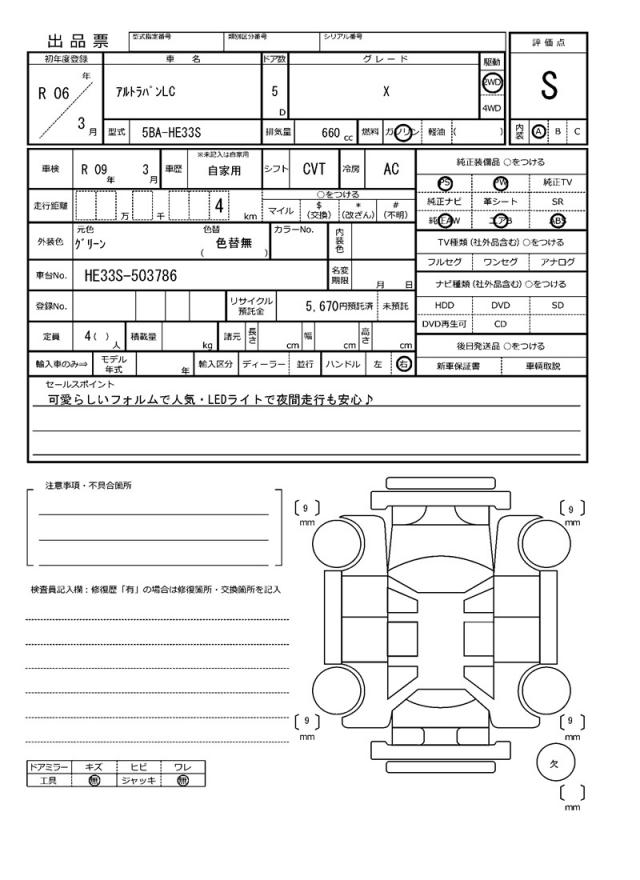 出品票
型式指定番号 類別区分番号 シリアル番号
評価点
S
初年度登録 車名 ドア数 グレード 駆動
R 06 年 3 月
アルトラパンLC 5 D X 2WD 4WD
型式 5BA-HE33S 排気量 660 cc 燃料 ガソリン 軽油 ( )
内装 A B C
車検 R 09 年 3 月 車歴 ※未記入は自家用 自家用 シフト CVT 冷房 AC
純正装備品 ○をつける
PS PW 純正TV
純正ナビ 革シート SR
純正AW エアB ABS
走行距離 万 千 4 km
○をつける
マイル $(交換) *(改ざん) #(不明)
外装色 元色 グリーン 色替 色替無 ( ) カラーNo. 内装色
TV種類(社外品含む)○をつける
フルセグ ワンセグ アナログ
車台No. HE33S-503786 名変期限 月 日
ナビ種類(社外品含む)○をつける
HDD DVD SD
DVD再生可 CD
登録No. リサイクル預託金 5,670円預託済 未預託
定員 4( )人 積載量 kg 諸元 長さ cm 幅 cm 高さ cm
後日発送品 ○をつける
新車保証書 車輌取説
輸入車のみ⇒ モデル年式 年 輸入区分 ディーラー 並行 ハンドル 左 右
セールスポイント
可愛らしいフォルムで人気・LEDライトで夜間走行も安心♪
注意事項・不具合箇所
検査員記入欄:修復歴「有」の場合は修復箇所・交換箇所を記入
9 mm
9 mm
9 mm
9 mm
欠
mm
ドアミラー キズ ヒビ ワレ
工具 無 ジャッキ 無